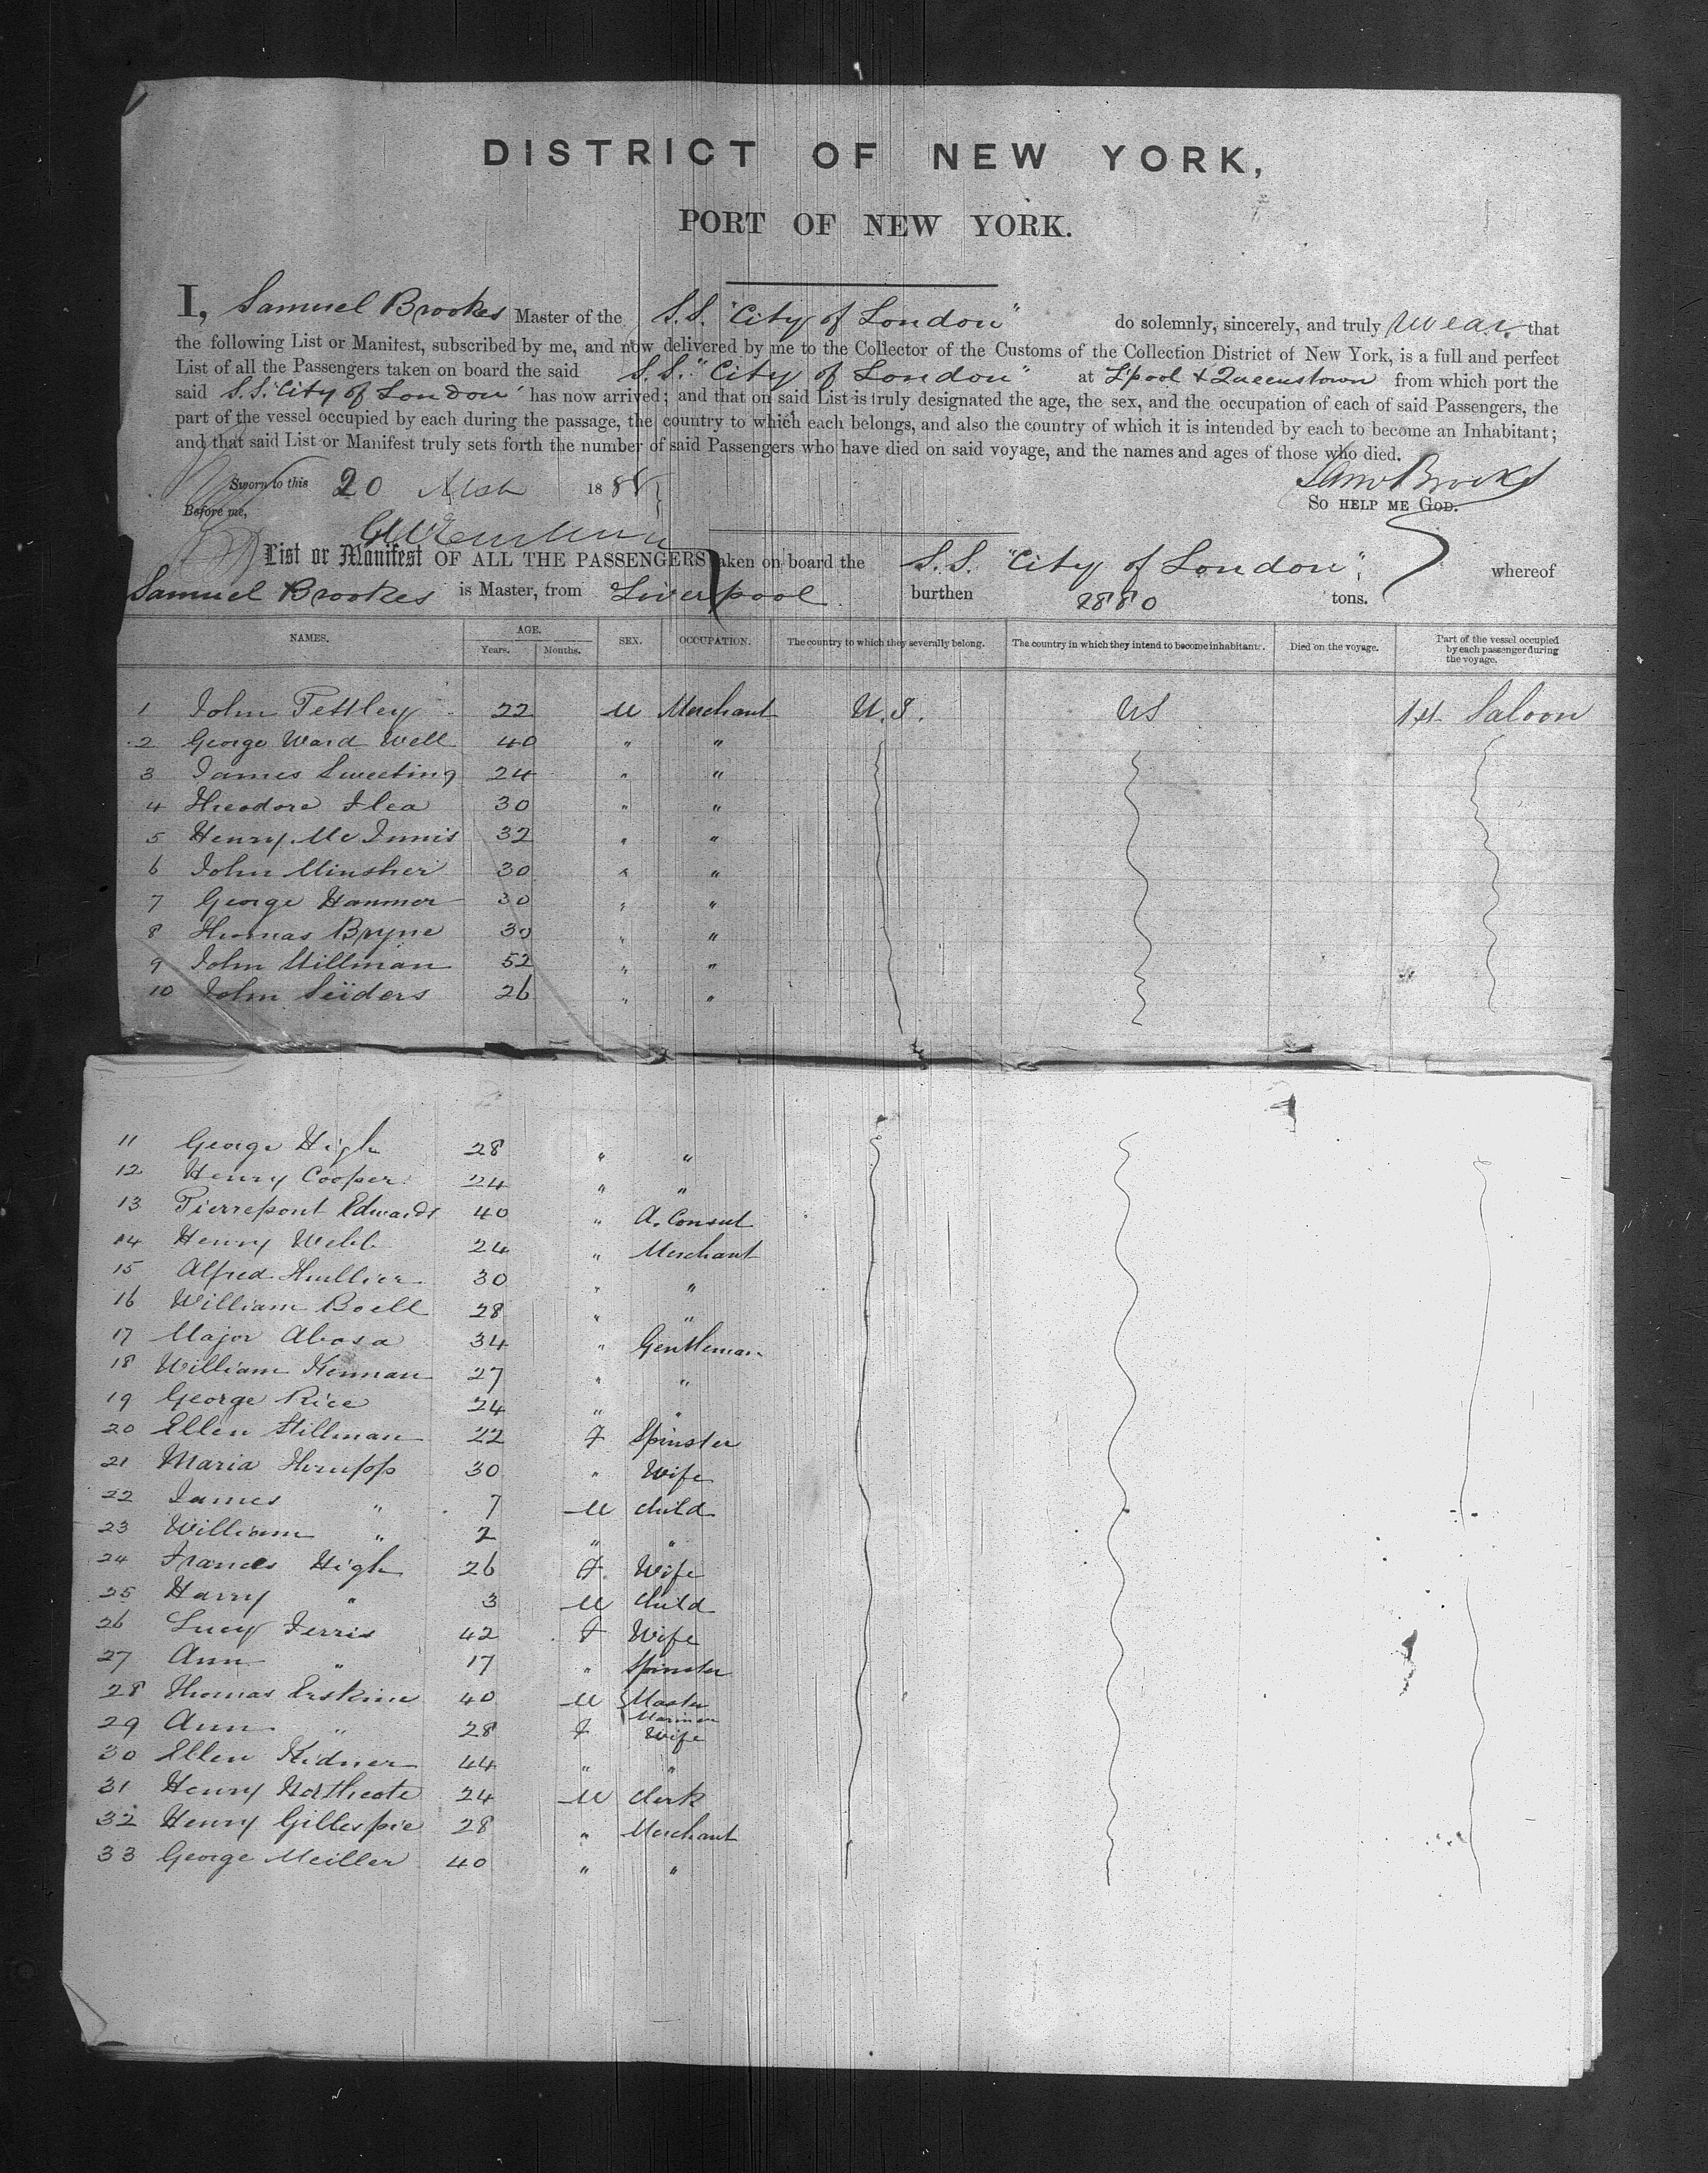 DISTRICT OF NEW YORK,
PORT OF NEW YORK.
I, Samuel Brookes Master of the S.S. "City of London" do solemnly, sincerely, and truly swear that
the following List or Manifest, subscribed by me, and now delivered by me to the Collector of the Customs of the Collection District of New York, is a full and perfect
List of all the Passengers taken on board the said S.S. "City of London" at L'pool & Queenstown from which port the
said S.S. "City of London" has now arrived; and that on said List is truly designated the age, the sex, and the occupation of each of said Passengers, the
part of the vessel occupied by each during the passage, the country to which each belongs, and also the country of which it is intended by each to become an Inhabitant;
and that said List or Manifest truly sets forth the number of said Passengers who have died on said voyage, and the names and ages of those who died.
Saml Brooks
Sworn to this 20 18
So help me God.
Before me,
List or Manifest OF ALL THE PASSENGERS taken on board the S.S. "City of London", whereof
Samuel Brookes is Master, from Liverpool burthen 2880 tons.
NAMES. AGE. Years. Months. SEX. OCCUPATION. The country to which they severally belong. The country in which they intend to become inhabitants. Died on the voyage. Part of the vessel occupied by each passenger during the voyage.
1 John Tettley 22 M Merchant U.S. US 1st Saloon
2 George Ward Well 40 " "
3 James Sweeting 24 " "
4 Theodore 30 " "
5 Henry McInnis 32 " "
6 John Minsher 30 " "
7 George Hanmer 30 " "
8 Thomas Bryne 30 " "
9 John Stillman 52 " "
10 John Seiders 26 " "
11 George High 28 " "
12 Henry Cooper 24 " "
13 Pierrepont Edwards 40 " A. Consul
14 Henry Webb 24 " Merchant
15 Alfred 30 " "
16 William Boell 28 " "
17 Major Abasa 34 " Gentleman
18 William Kennan 27 " "
19 George Rice 24 " "
20 Ellen Stillman 22 F Spinster
21 Maria 30 " Wife
22 James " 7 M Child
23 William " 2 " "
24 Frances High 26 F Wife
25 Harry " 3 M Child
26 Lucy Ferris 42 F Wife
27 Ann " 17 " Spinster
28 Thomas Erskine 40 M Master Mariner
29 Ann " 28 F Wife
30 Ellen Kidner 44 " "
31 Henry Northcote 24 M Clerk
32 Henry Gillespie 28 " Merchant
33 George Meiller 40 " "